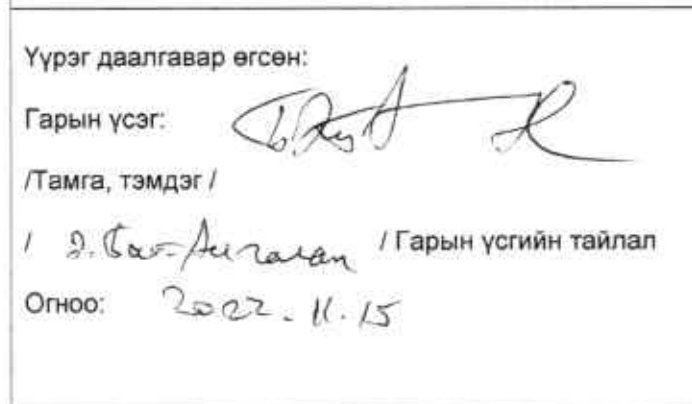 Үүрэг даалгавар өгсөн:
Гарын үсэг:
/Тамга, тэмдэг /
/ Э. Бат-Амгалан / Гарын үсгийн тайлал
Огноо: 2022. 11. 15